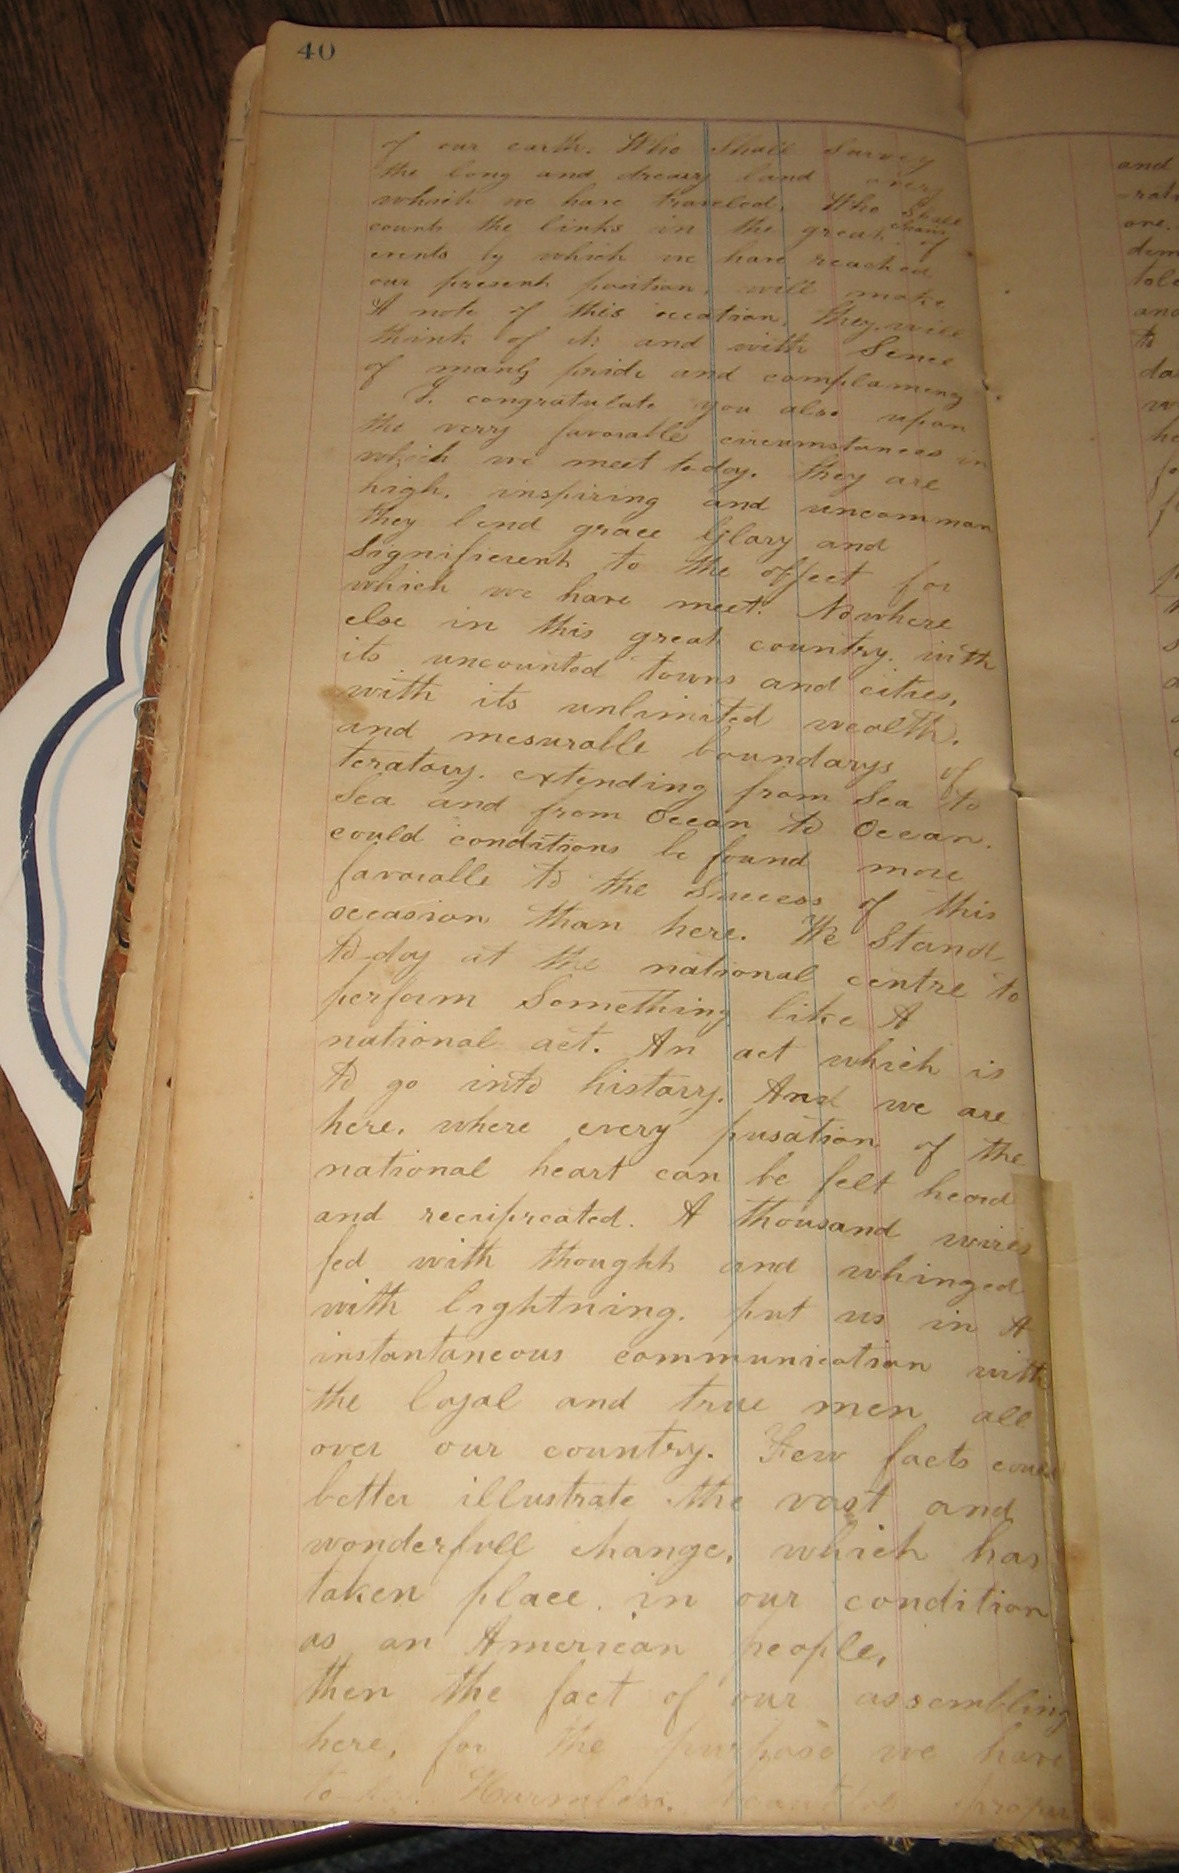 40
of our earth. Who Shall Survey
the long and dreary land overy
which we have traveled. Who Shall
count the links in the great chain of
events by which we have reached
our present position, will make
A note of this occation, they will
think of it and with Sence
of manly pride and complamency
I. congratulate you also upon
the verry favorable circumstances in
which we meet to-day. they are
high, inspiring and uncomman
they lend grace Glory and
Significent to the offect for
which we have meet. Nowhere
else in this great country. with
its uncounted towns and cities,
with its unlimited wealth.
and mesurable boundarys of
teratory. extending from Sea to
Sea and from Ocean to Ocean.
could conditions be found more
favorable to the Success of this
occasion than here. We Stand
to-day at the national centre to
perform Something like A
national act. An act which is
to go into history. And we are
here, where every pusation of the
national heart can be felt heard
and recipreated. A thousand wires
fed with thought and whinged
with lightning. put us in A
instantaneous communication with
the loyal and true men all
over our country. Few facts could
better illustrate the vast and
wonderfull change, which has
taken place. in our condition
as an American people,
then the fact of our assembling
here, for the purpose we have
to-day. Harmless, beautiful proper
and
one.
dem
tole
and
to
da
w
he